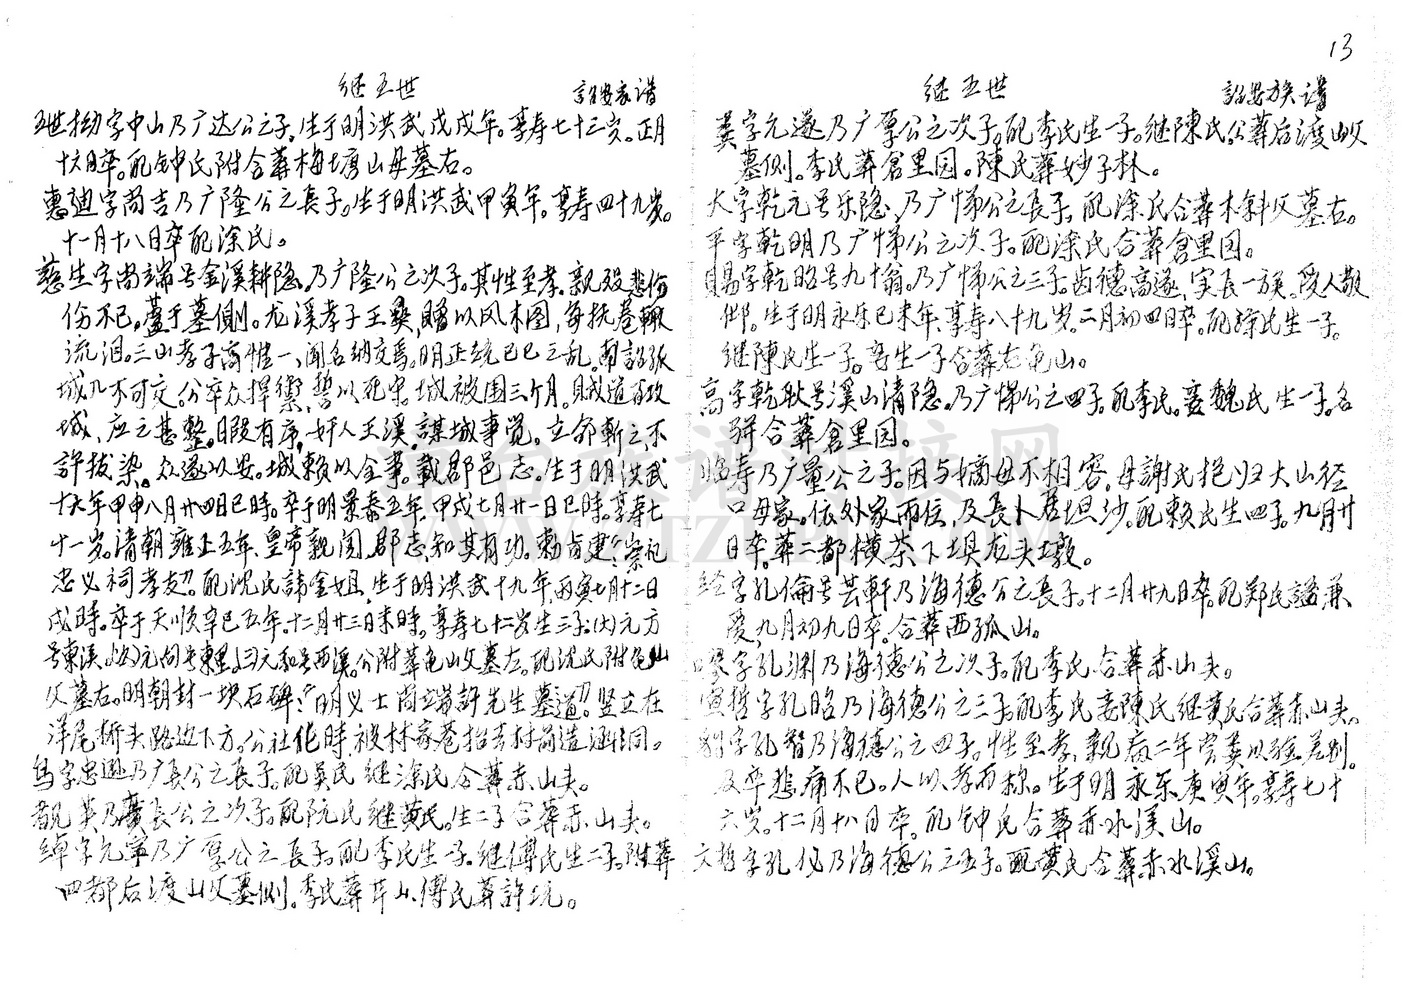 13
继五世
詔安家譜
五世拗字中山乃广达公之子。生于明洪武戊戌年。享寿七十三岁。正月
十六日卒。配钟氏附合葬梅塘山母墓右。
惠廸字尚吉乃广隆公之長子。生于明洪武甲寅年。享寿四十九岁。
十一月十八日卒配涂氏。
慈生字尚端号金溪耕隐。乃广隆公之次子。其性至孝。親殁悲伤
伤不已。蘆于墓侧。龙溪孝子王奠，贈以风木图，每抚卷輒
流泪。三山孝子高惟一、闻名纳交焉。明正统己巳之乱。南詔孤
城几不可支。公卒众捍禦，誓以死守。城被困三个月。賊道百攻
城、应之甚整。日暇有序，奸人王溪。謀城事觉。立命斬之、不
許拔染。众遂以安。城賴以全事。載郡邑志。生于明洪武
十六年甲申八月廿四日巳時。卒于明景泰五年，甲戍七月廿一日巳時。享寿七
十一岁。清朝雍正五年，皇帝親闻，郡志、知其有功。勅旨建：崇祀
忠义祠孝友。配沈氏諱金姐，生于明洪武十九年丙寅七月十二日
戍時。卒于天順辛巳五年。十二月廿三日未時。享寿七十六岁生三子:(大)元方
号東溪。(次)元向号東里。(三)元和号西溪。公附葬龟山父墓左。配沈氏附龟山
父墓右。明朝封一块石碑："明义士尚端許先生墓道"竖立在
洋尾桥头路边下方。公社化時，被林家巷招去村前造涵洞。
字忠遜乃广長公之長子。配吳氏继涂氏合葬赤山夫。
英乃廣長公之次子。配阮氏继黄氏。生二子合葬赤山夫。
绰字元寧乃广厚公之長子。配李氏生一子。继傅氏生二子。附葬
四都后渡山父墓侧。李氏葬 山、傅氏葬許坑。
继五世
詔安族譜
字元遂乃广厚公之次子。配李氏生一子。继陳氏。公葬后渡山父
墓侧。李氏葬倉里园。陳氏葬妙子林。
大字乾元号乐隐、乃广悌公之長子，配涂氏合葬木斜父墓右。
平字乾明乃广悌公之次子。配涂氏合葬倉里园。
賜字乾昭号九十翁。乃广悌公之三子。齿德高遂，实長一族。受人敬
仰。生于明永乐己未年，享寿八十九岁。二月初四日卒。配徐氏生一子。
继陳氏生一子。妾生一子合葬左龟山。
高字乾耿号溪山清隐。乃广悌公之四子。配李氏。妾魏氏生一子。各
骈合葬倉里园。
寿乃广量公之子。因与嫡母不相容。母謝氏抱归大山径
口母家。依外家而住，及長卜居坦沙。配賴氏生四子。九月廿
日卒。葬二都横茶下埧龙头墩。
字孔倫号芸軒乃海德公之長子。十二月廿九日卒。配郑氏謚兼
爱，九月初九日卒。合葬西孤山。
字孔渊乃海德公之次子。配李氏合葬赤山夫。
寅哲字孔昭乃海德公之三子。配李氏妾陳氏继黄氏合葬赤山夫。
字孔智乃海德公之四子。性至孝，親病二年尝粪以验差别。
及卒悲痛不已。人以孝而称。生于明永乐庚寅年。享寿七十
六岁。十二月十八日卒。配钟氏合葬赤水溪山。
文哲字孔化乃海德公之五子。配黄氏合葬赤水溪山。